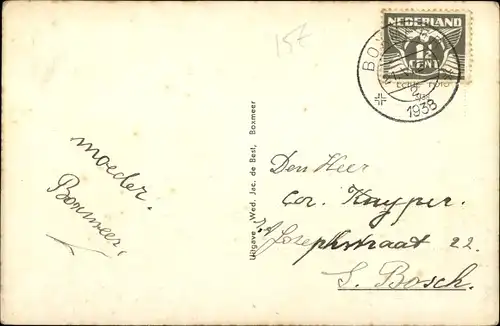 15£
NEDERLAND
1½
CENT
BOXMEER
1938
moeder.
Boxmeer,
Uitgave Wed. Jac. de Best, Boxmeer
Den Heer
Cor. Kuyper.
Josephstraat 22.
S. Bosch.